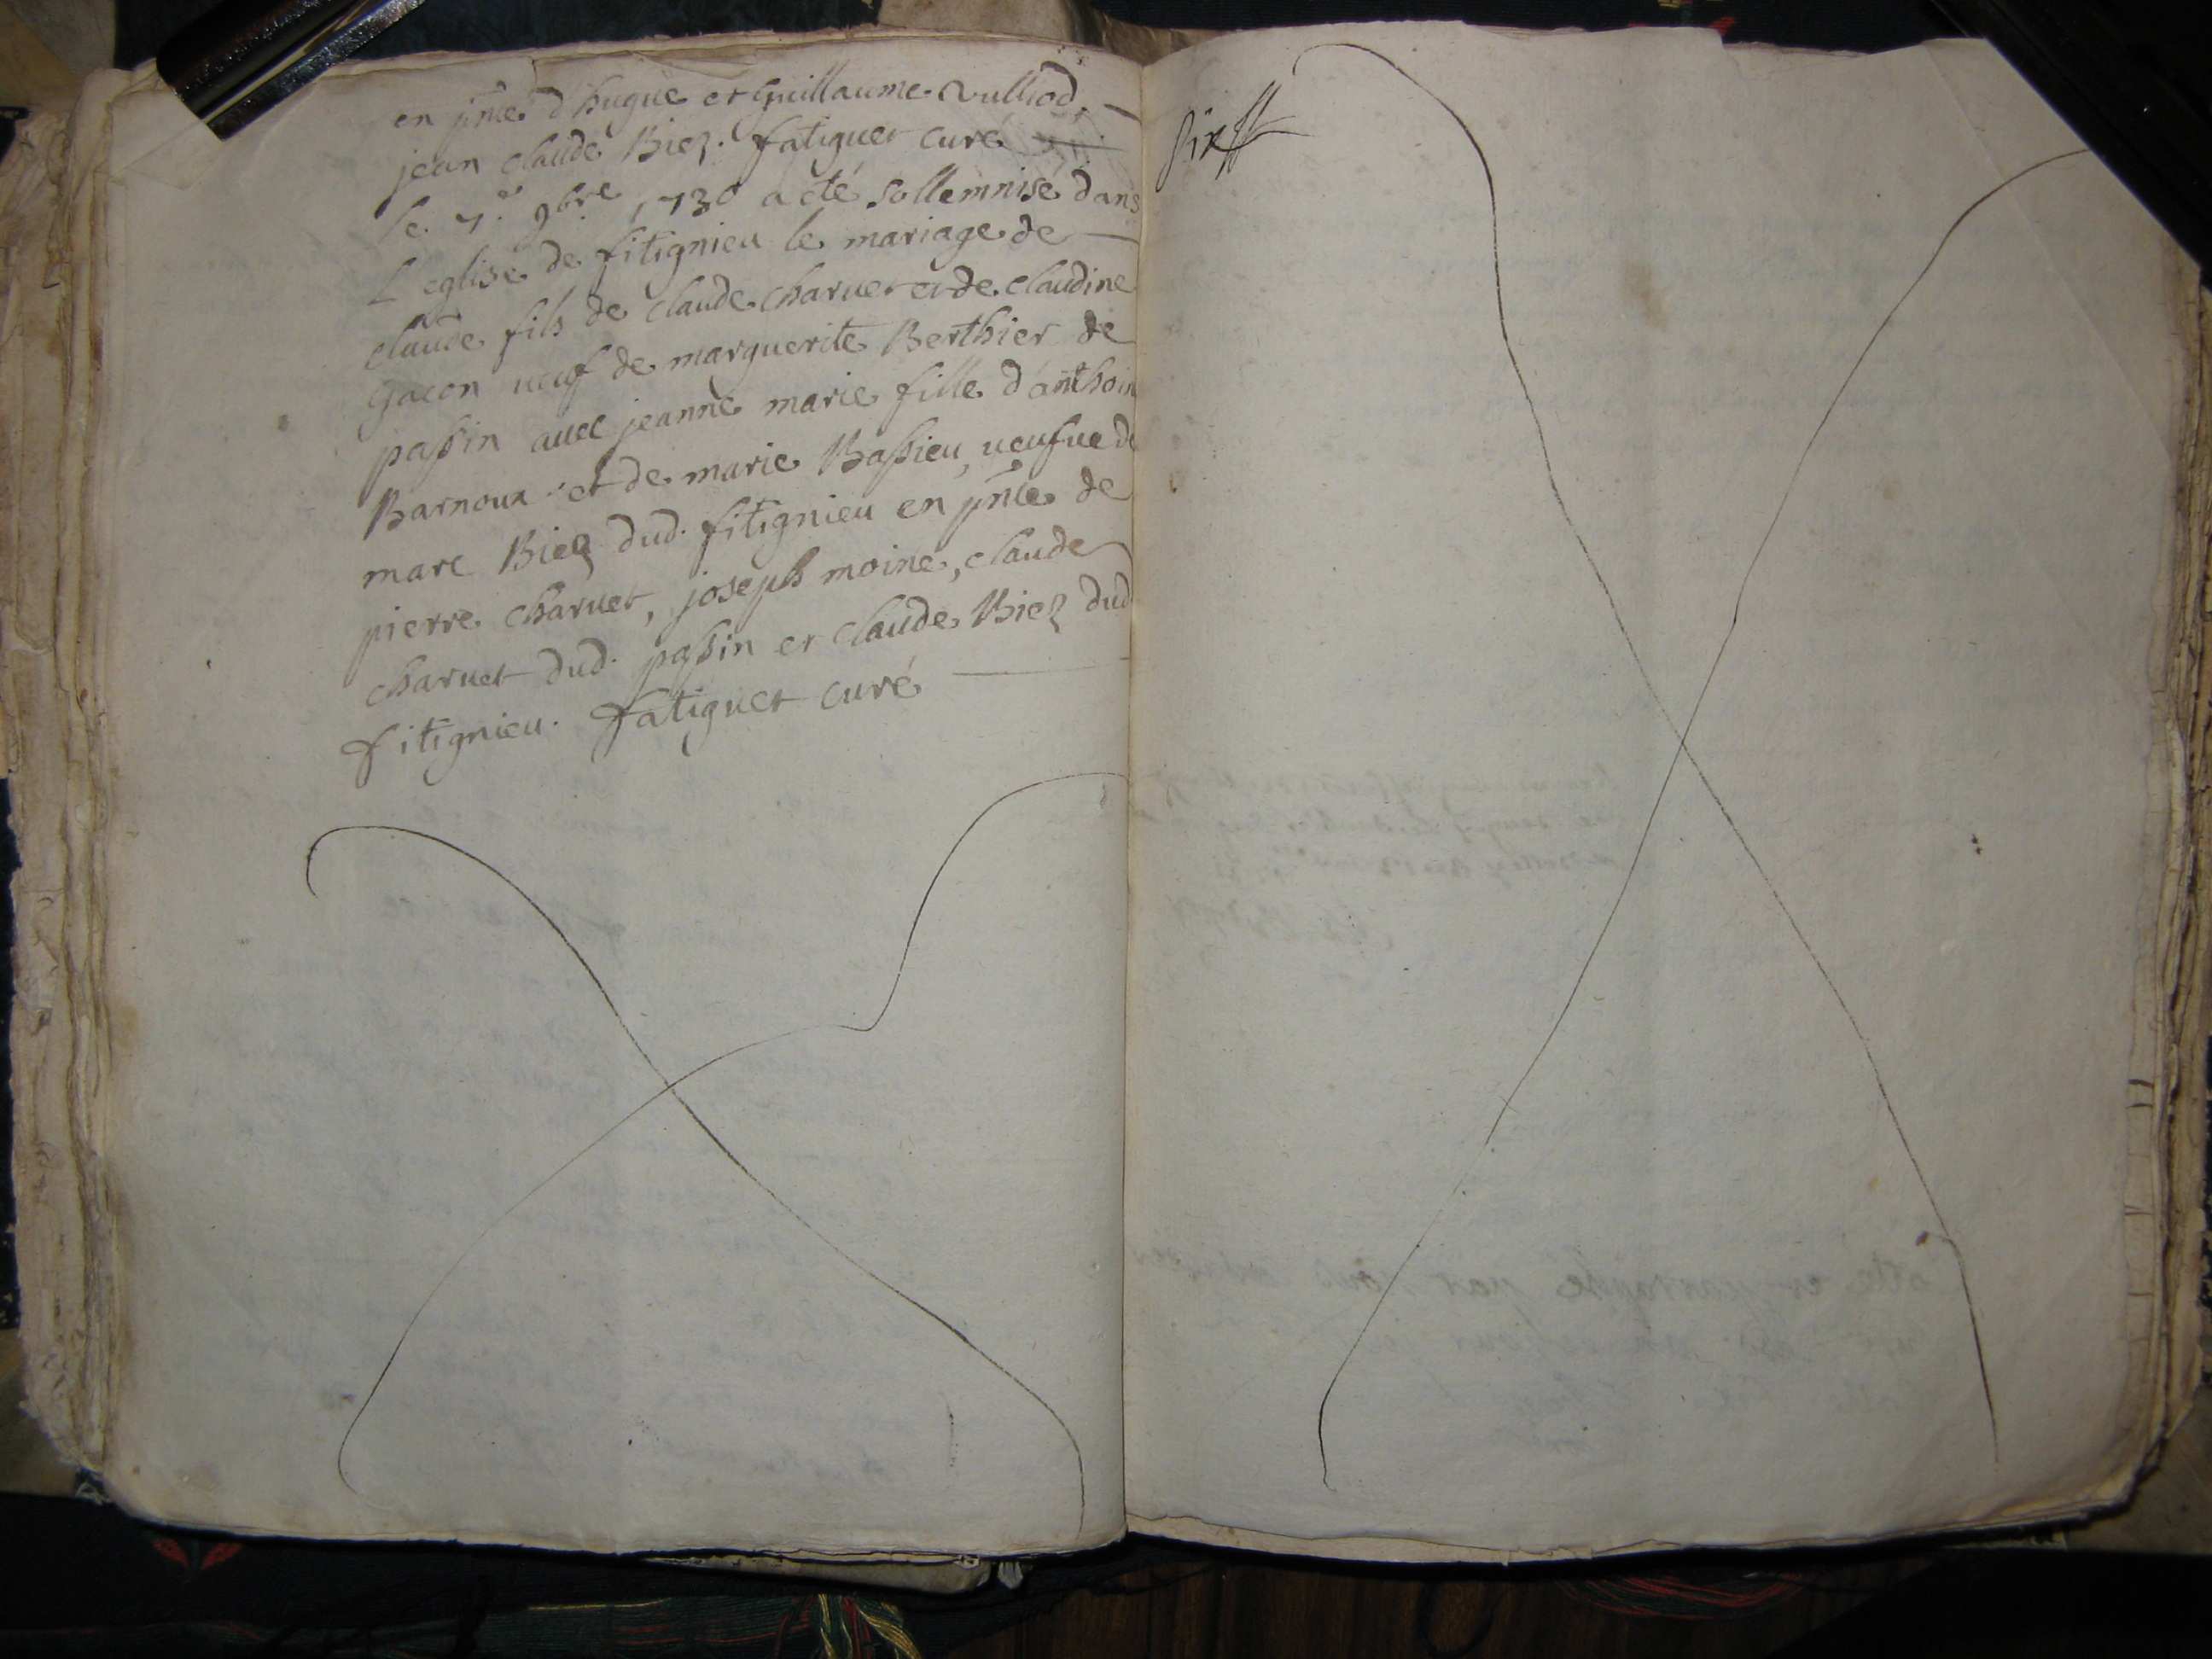 en pnce d'hugue et guillaume vulliod,
jean claude Biez. fatiguet curé
le. 7.e 9bre 1730 a eté sollemnisé dans
L'eglise de fitignieu le mariage de
claude fils de claude charuet et de claudine
gacon ueuf de marguerite Berthier de
passin auec jeanne marie fille d'anthoin
Barnoux et de marie Bassieu, ueufue de
marc Biez dud. fitignieu en pnce de
pierre charuet, joseph moine, claude
charuet dud. passin et claude Biez dud
fitignieu. fatiguet curé